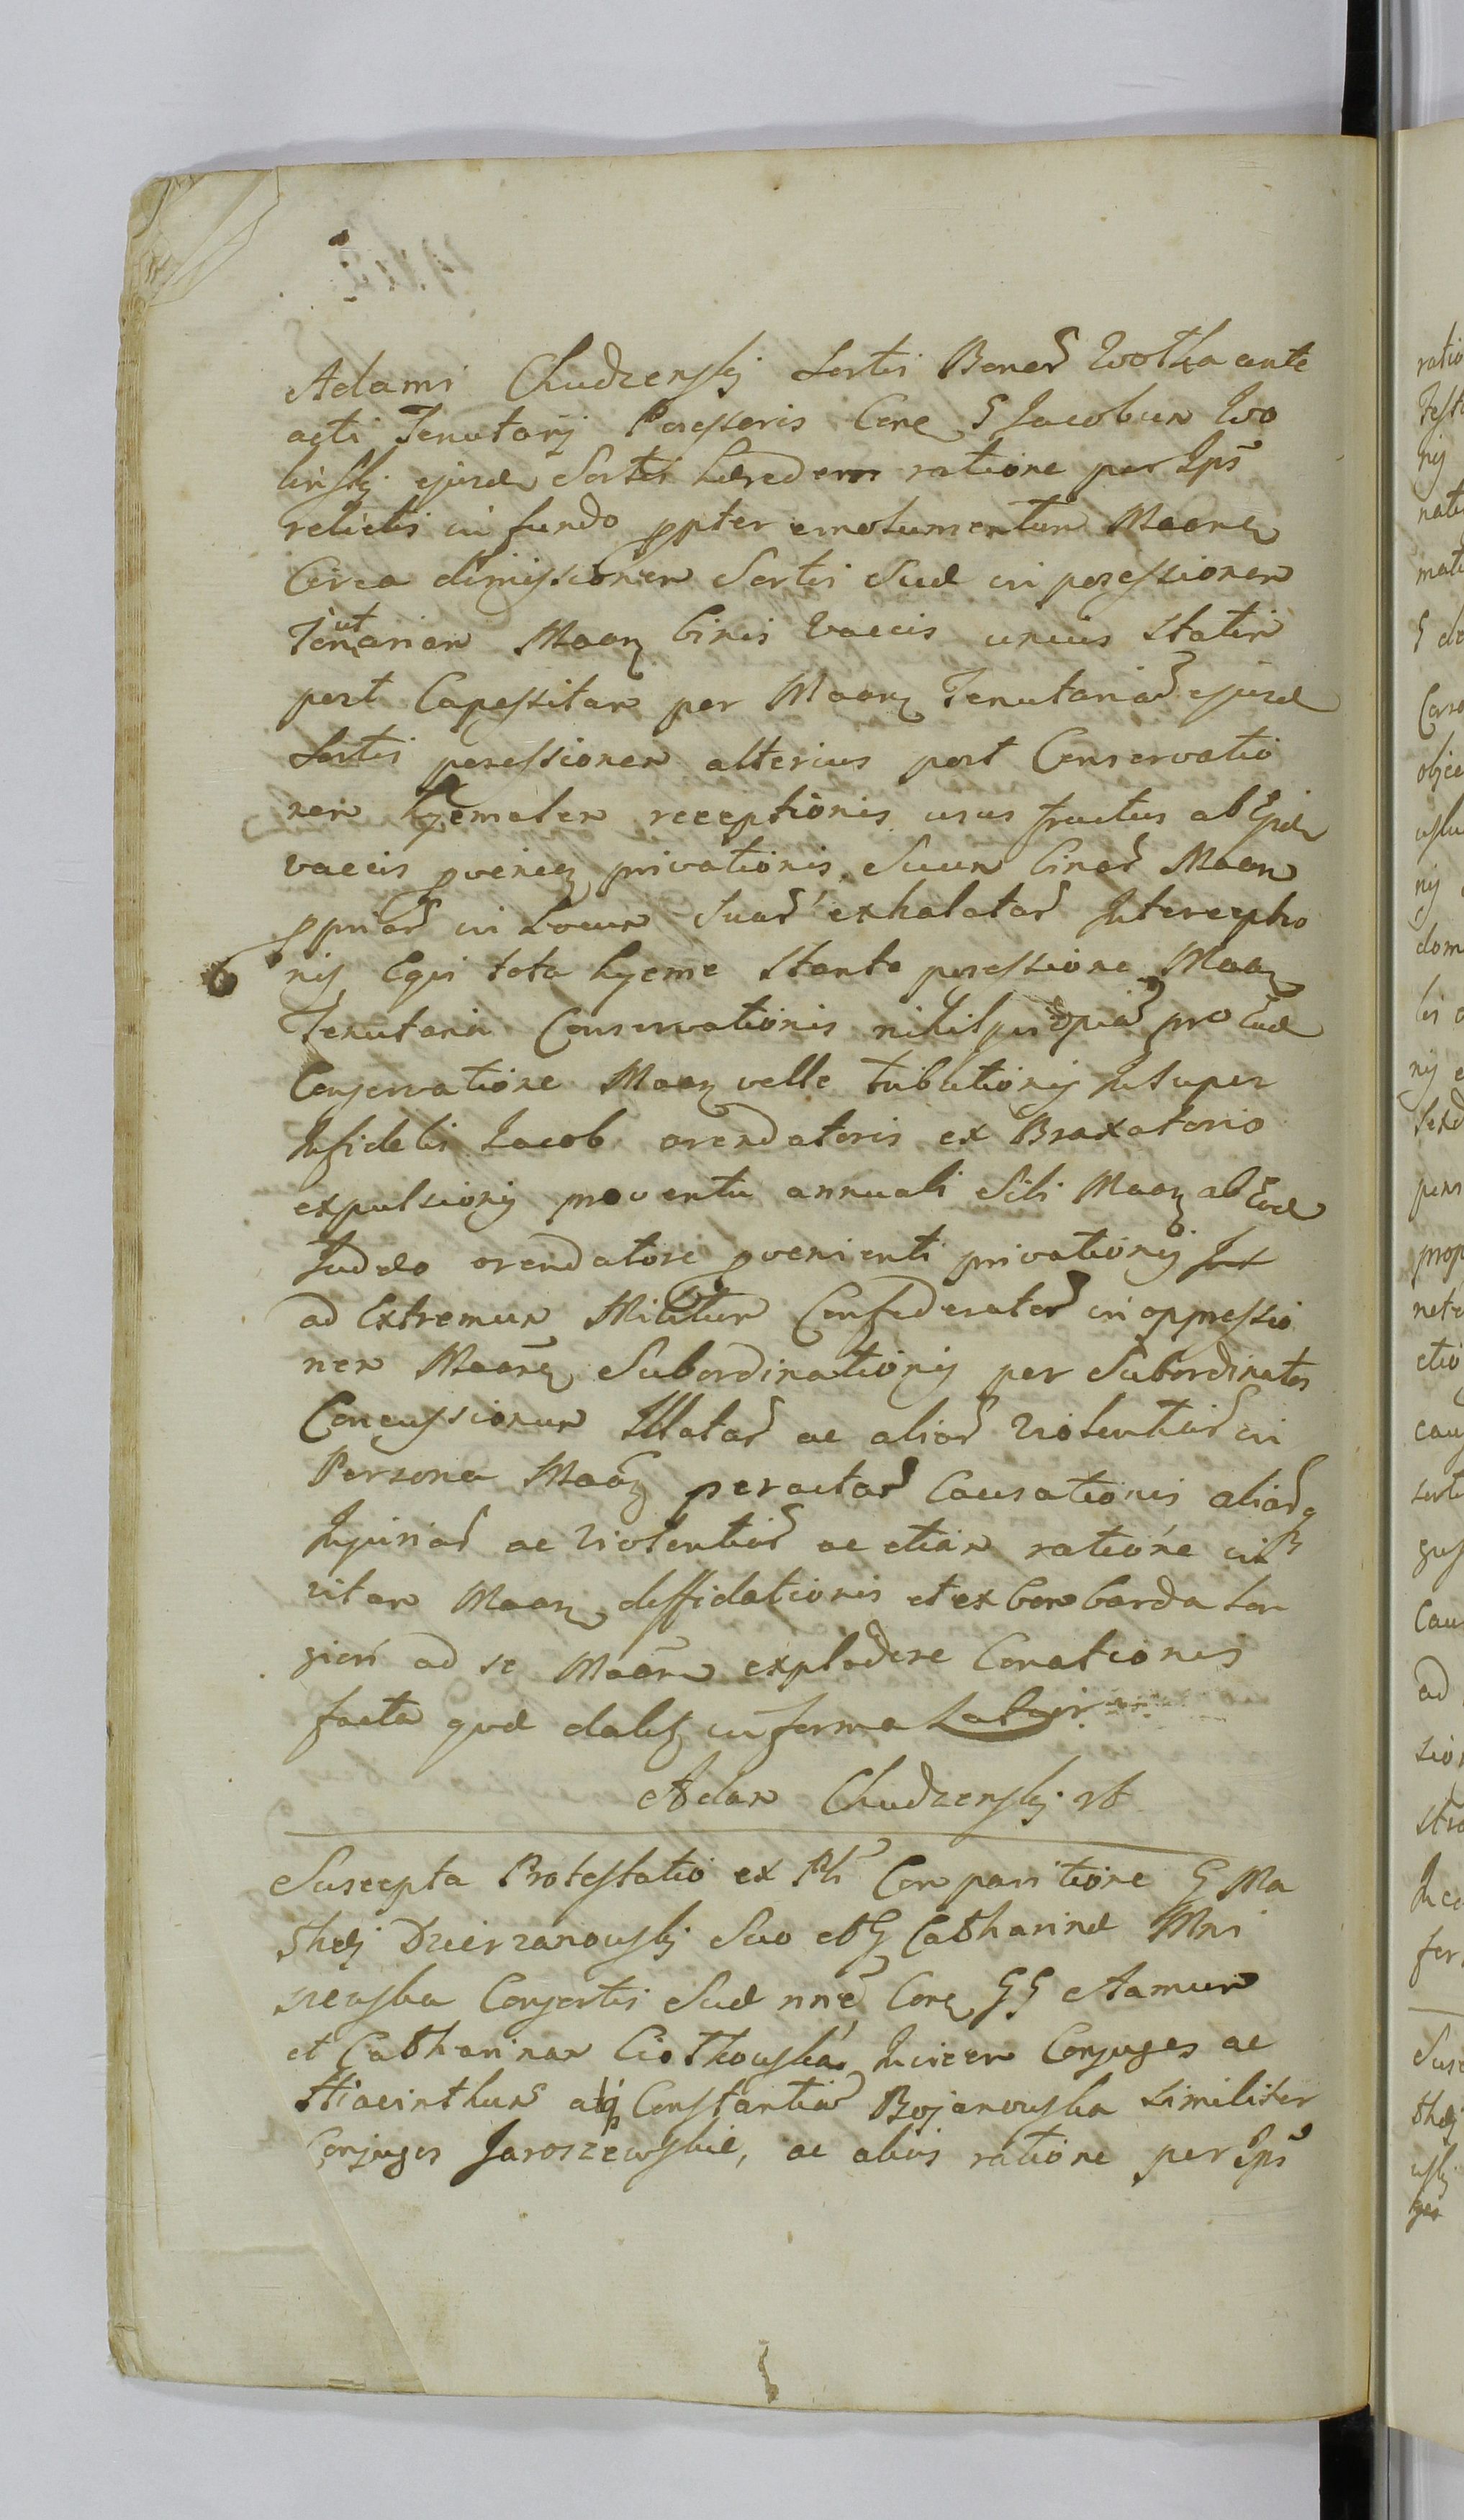 Adami Chudzenskj Sortis Bonor Wolka ante
acti Tenutarij Possessoris Cone G Jacobum Wo
linskj ejusd Sortis hdredem ratione per Ips
relictis in fundo ppter emolumentum Maone
Circa dimissionem Sortis Sud in possessionem
Tenutariam Maon binis vaccis unius Statim
post Capessitam per Maon Tenutariar ejusd
Sortis possessionem alterius post Conservatio
nem hyemalem receptionis usus fructus ab Ejsd
vaccis pvenien privationis, Suum binar Maon
ppriar in Locum Suar exhalatar Interceptio
nis Equi tota hyeme Stante possessione Maon
Tenutaria Conservationis nihil pro Ead
Conservatione Maon velle tributionis Insuper
Infidelis Jacob arendatoris ex Braxatorio
expulsionis proventu annuali Sibi Maon ab Eod
Juddo arendatore pvenienti privationis
ad Extremum Militum Confederator in oppressio
nem Maone Subordinationis per Subordinatos
Concussionum Illatar ac aliar violentiar in
Persona Maon peractar Causationis aliarq
Injuriar ac violentiar ac etiam ratione in
vitam Maon diffidationis et ex bombarda
ad se Maon explodere Conationis
facta qud dalq in forma Latior
Adam Chudzenskj
Suscepta Protestatio ex Pli Comparitione G Ma
thej Dzierzanowskj Suo et G Catharind Mni
szewska Consortis Sud nne Cone GG Aamum
et Catharinam Ciotkowska Invicem Conjuges ac
Hiacinthum atq Constantiar Bojanowska similiter
Conjuges Jaroszewskie, ac alios ratione per Ips